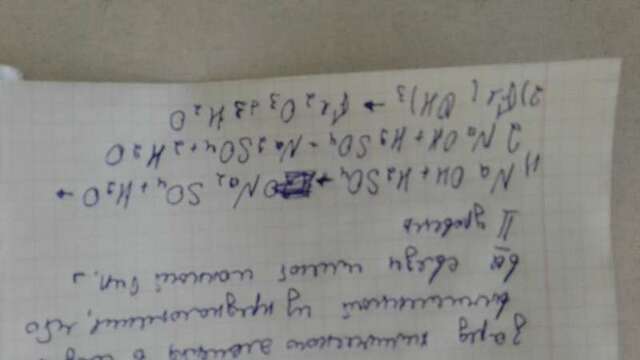 заряд химического элемента в
вычисленный из предположения, что
все связи имеют ионный тип.
II уровень
1) NaOH + H2SO4 → Na2SO4 + H2O →
2NaOH + H2SO4 - Na2SO4 + 2H2O
2) Fe(OH)3 → Fe2O3 + 3H2O